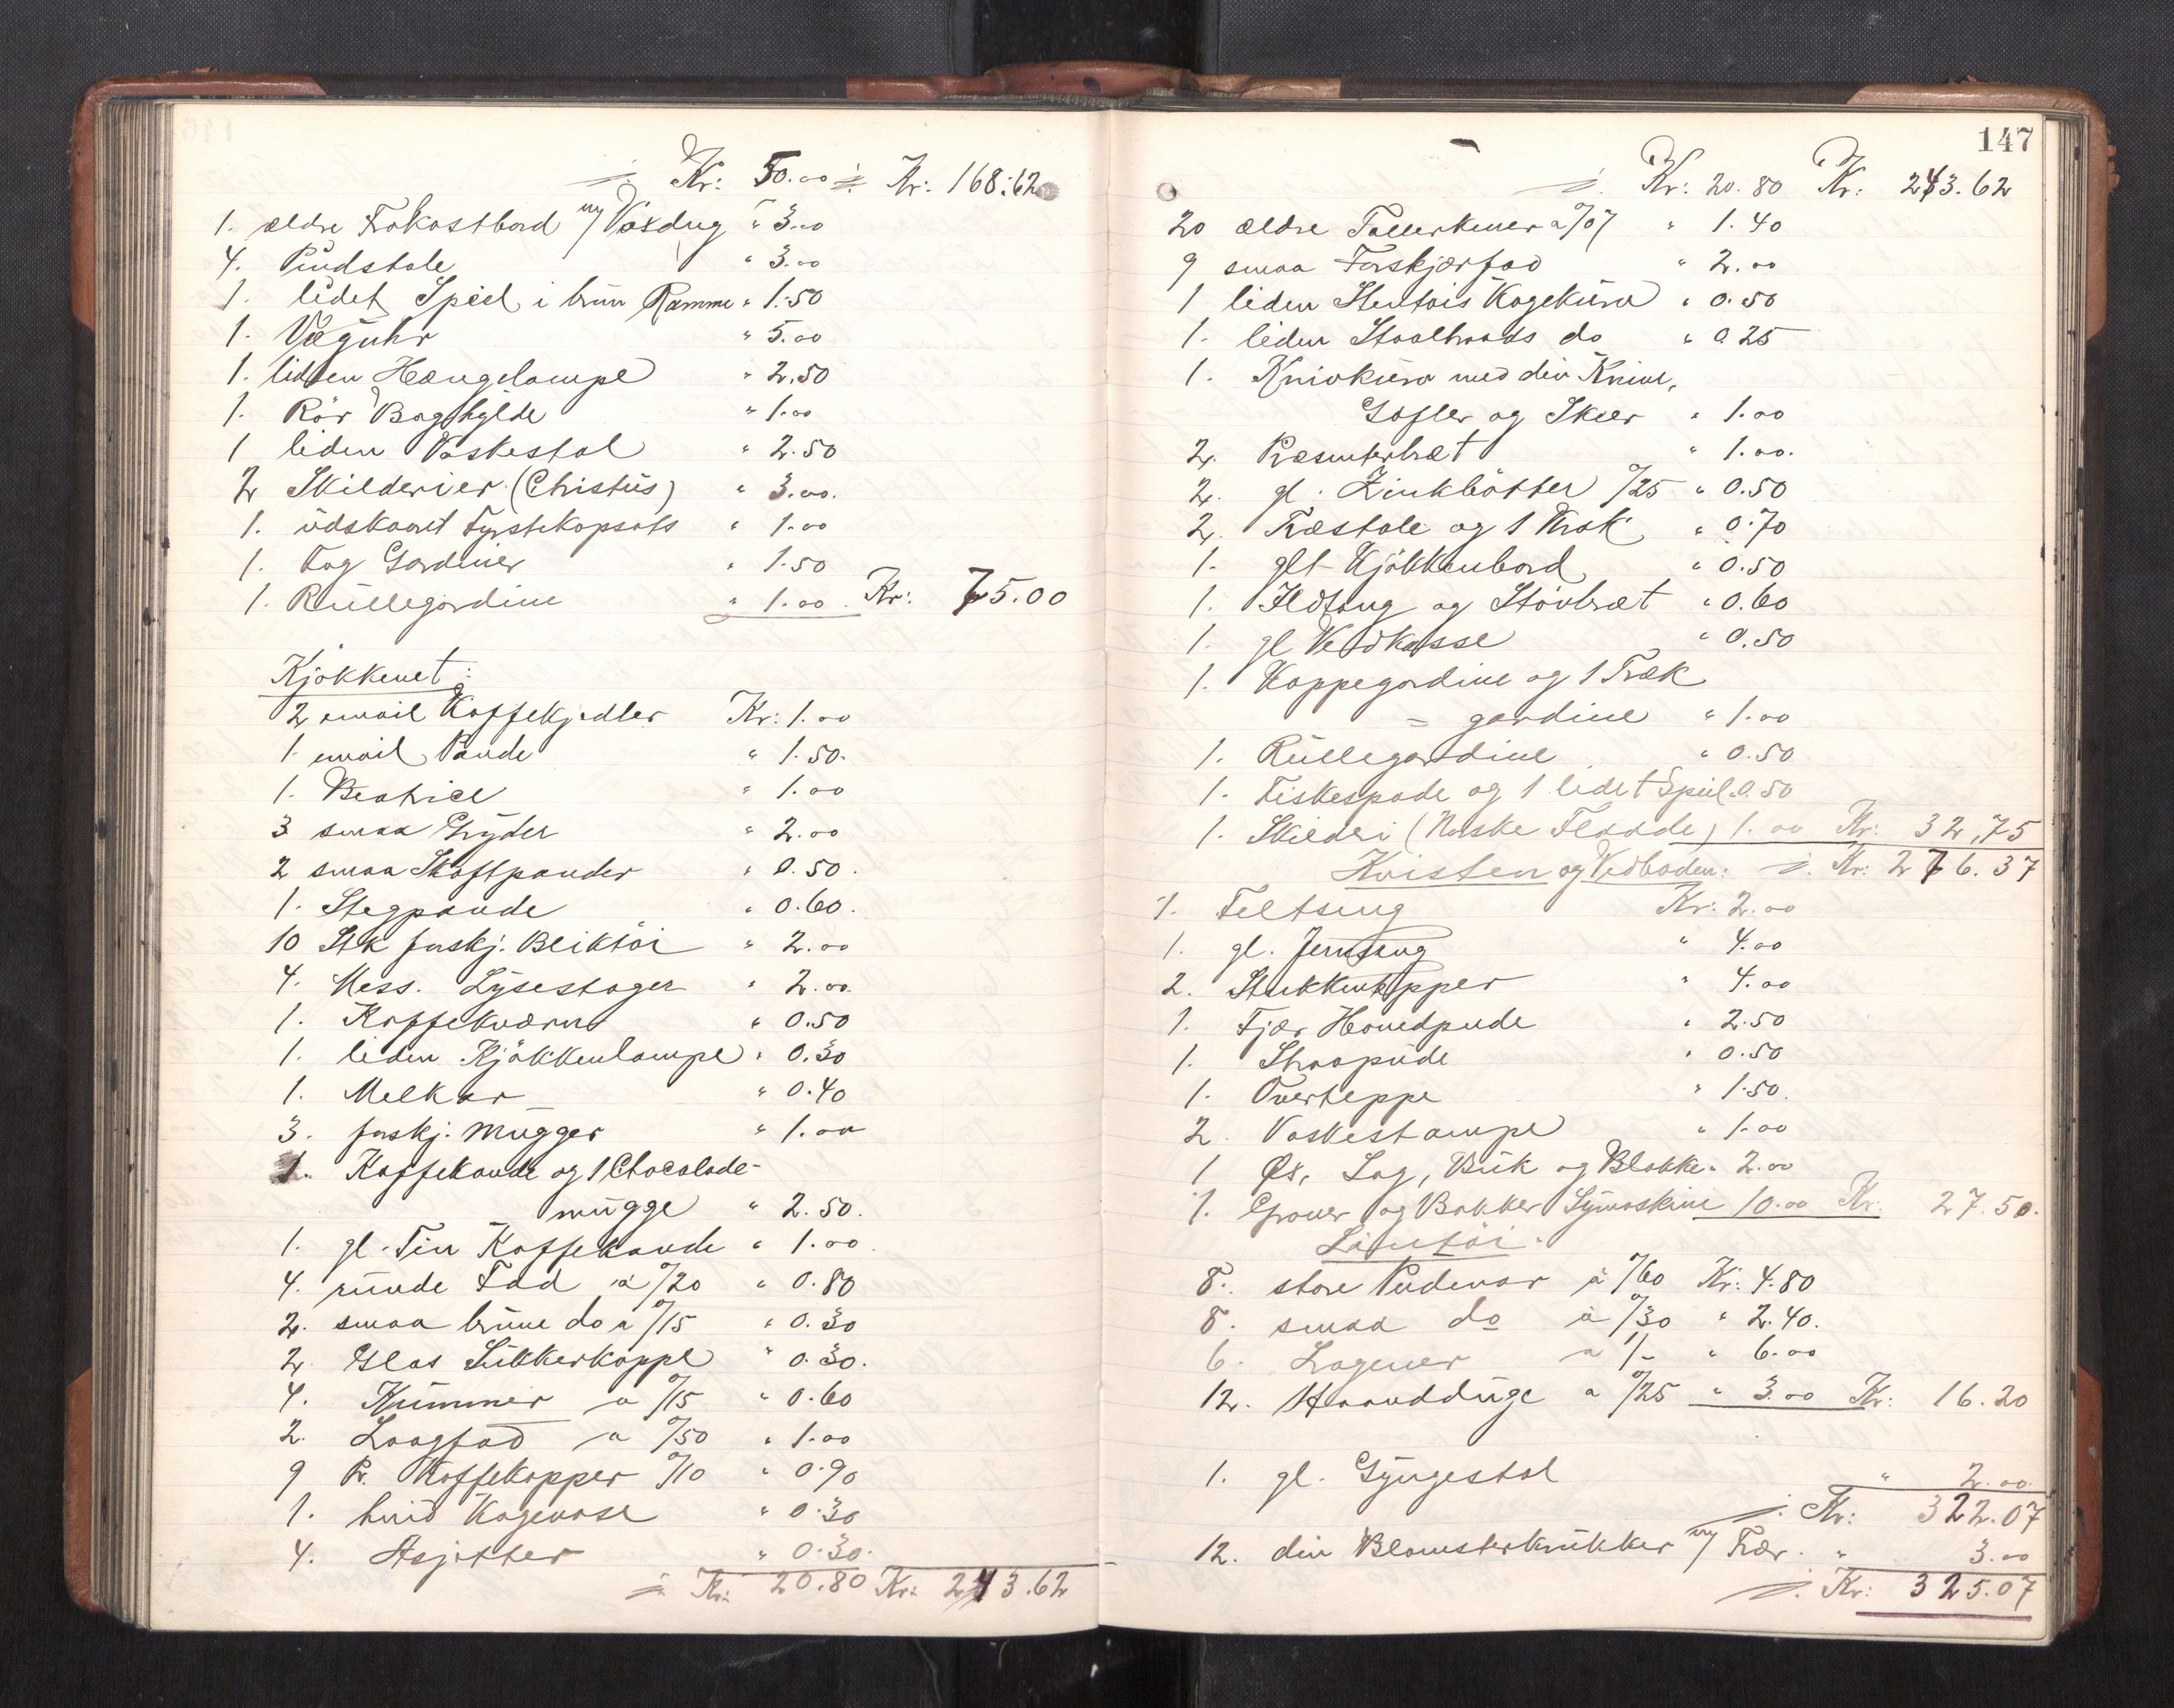 ÷ Kr: 50.00 ÷ Kr: 168.62
1. ældre Frokostbord m/ Voxdug " 3.00
4. Pindstole " 3.00
1. lidet Speil i brun Ramme " 1.50
1. Væguhr " 5.00
1. liden Hængelampe " 2.50
1. Rör Boghylde " 1.00
1 liden Vaskestol " 2.50
2 Skilderier (Christus) " 3.00.
1. udskaaret Fyrstikopsats " 1.00
1. Fag Gardiner " 1.50
1. Rullegardine " 1.00. Kr: 75.00
Kjökkenet:
2 email Kaffekjedler Kr: 1.00
1. email Pande " 1.50.
1. Beatrice " 1.00
3 smaa Gryder " 2.00
2 smaa Skaftpander " 0.50.
1. Stegpande " 0.60.
10 Stk forskj. Bliktöi " 2.00
4. Mess. Lysestager " 2.00.
1. Kaffekværn " 0.50
1. liden Kjökkenlampe " 0.30
1. Melkar " 0.40
3. forskj. Mugger " 1.00
1. Kaffekande og 1 Chocolade-
mugge " 2.50.
1. gl. Tin Kaffekande " 1.00.
4. runde Fad à 0/20 " 0.80
2. smaa brune do a 0/15 " 0.30
2. Glas Sukkerkoppe " 0.30.
4. Kummer a 0/15 " 0.60
2. Laagfad a 0/50 " 1.00
9 Pr. Kaffekopper 0/10 " 0.90
1. hvid Kagevase " 0.30
4. Asjetter " 0.30.
÷ Kr: 20.80 Kr: 243.62
147
÷ Kr: 20.80 Kr: 243.62
20 ældre Tallerkener a 0/07 " 1.40
9 smaa Forskjærfad " 2.00
1 liden Stentöis Kagekurv " 0.50
1. liden Staaltraads do " 0.25
1. Knivkurv med div Knive,
Gafler og Skeer " 1.00
2. Præsenterbræt " 1.00.
2. gl. Zinkbötter 0/25 " 0.50
2. Træstole og 1 Krak " 0.70
1. glt Kjökkenbord " 0.50
1. Ildtang og Stövbræt " 0.60
1. gl Vedkasse " 0.50
1. Kappegardine og 1 Træk
= gardine " 1.00
1. Rullegardine " 0.50
1. Fiskespade og 1 lidet Speil. 0.50
1. Skilderi (Norske Flaade) 1.00 Kr: 32,75
Kvisten og Vedboden: ÷ Kr: 276.37
1. Feltseng Kr: 2.00
1. gl. Jernseng " 4.00
2. Stukketepper " 4.00
1. Fjær Hovedpude " 2.50
1. Straapude " 0.50
1. Overteppe " 1.50.
2. Vaskestampe " 1.00
1 Øx, Sag, Buk og Blokke " 2.00
1. Grover og Bakker Symaskine 10.00 Kr. 27.50.
Lintöi.
8. store Pudevar à 0/60 Kr: 4.80
8. smaa do à 0/30 " 2.40.
6. Lagener a 1/- " 6.00
12. Haandduge a 0/25 " 3.00 Kr: 16.20
1. gl. Gyngestol " 2.00.
÷ Kr: 322.07
12. div Blomsterkrukker m/ Trær. " 3.00
÷ Kr: 325.07